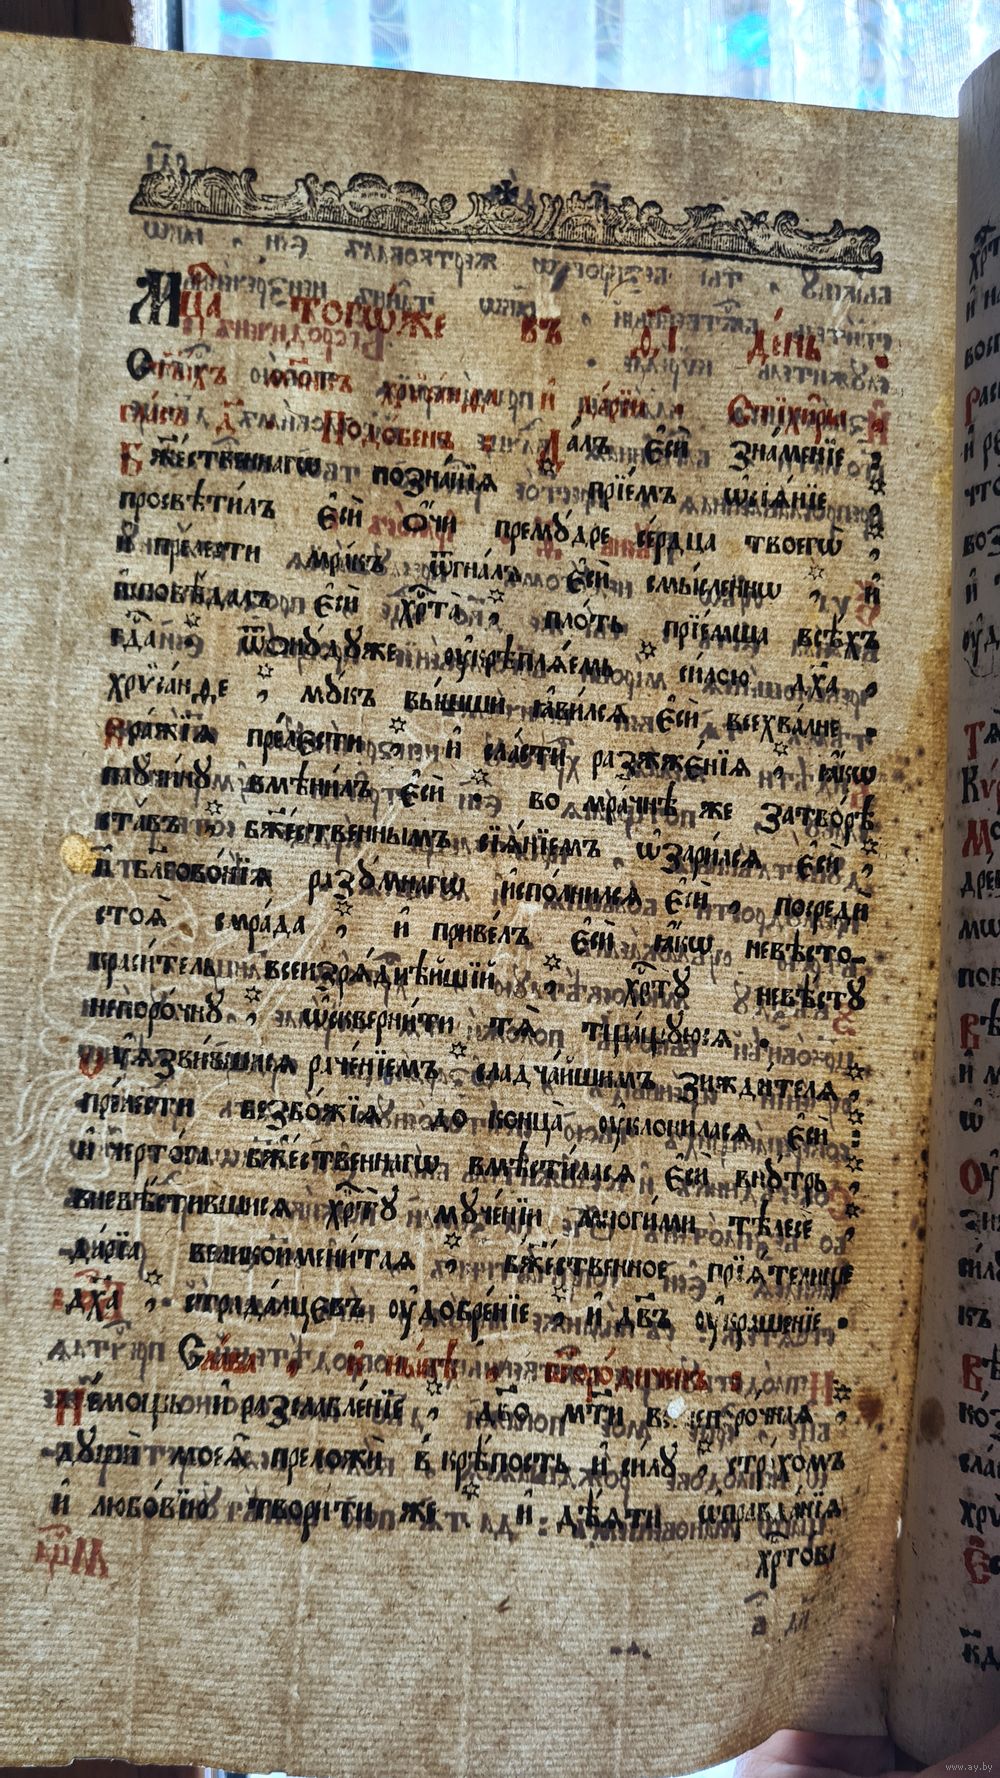 Мц҃а тогѡ́же въ д҃і де́нь .
Ст҃ы́хъ мч҃нкъ хрѷса́нѳа и҆ да́рїи . Стїхи̑ры
гла́съ д҃ . Подо́бенъ : Да́лъ є҆сѝ зна́менїе ,
Бж҃е́ственнагѡ позна́нїѧ * прїе́мъ ѡ҆сїѧ́нїе *
просвѣти́лъ є҆сѝ ѻ҆́чи премꙋ́дре се́рдца твоегѡ̀ , *
и҆ пре́лести мра́къ ѿгна́лъ є҆сѝ смы́сленнѡ , * и҆
и҆сповѣ́далъ є҆сѝ хрⷭ҇та̀ , * пло́ть прїе́мша всѣ́хъ
гдⷭ҇а , * ѿню́дꙋже ᲂу҆крѣплѧ́емь * си́лою дх҃а ,
хрѷса́нѳе , * мч҃нкъ вы́шшїи ꙗ҆ви́лсѧ є҆сѝ всехва́лне .
Вра́жїѧ пре́лести , * и҆ сла́сти разжже́нїѧ , * ꙗ҆́кѡ
паꙋчи́нꙋ вмѣни́лъ є҆сѝ , * во мра́чнѣ же затво́рѣ
ста́въ , * бж҃е́ственнымъ сїѧ́нїемъ ѡ҆зари́лсѧ є҆сѝ , *
и҆ бл҃гово́нїѧ разꙋ́мнагѡ и҆спо́лнилсѧ є҆сѝ , посредѝ
стоѧ̀ смра́да , * и҆ приве́лъ є҆сѝ ꙗ҆́кѡ невѣсто-
краси́тель всеизрѧ́днѣйшїй , * хрⷭ҇тꙋ̀ невѣ́стꙋ
непоро́чнꙋ , * ѡ҆скверни́ти тѧ̀ тща́щꙋюсѧ .
Оу҆ѧзви́вшисѧ раче́нїемъ * сладча́йшимъ зижди́телѧ , *
пре́лести безбо́жїѧ до конца̀ ᲂу҆клони́ласѧ є҆сѝ : *
и҆ черто́га бж҃е́ственнагѡ вмѣсти́ласѧ є҆сѝ внꙋ́трь , *
ᲂу҆невѣ́стившисѧ хрⷭ҇тꙋ̀ мꙋче́нїи мно́гими тѣлесѐ , *
да́рїа великоимени́таѧ , * бж҃е́ственное прїѧ́телище
дх҃а , * страда́лцєвъ ᲂу҆добре́нїе , * и҆ дв҃ъ ᲂу҆краше́нїе .
Сла́ва , и҆ ны́нѣ , бг҃оро́диченъ :
Не́мощь и҆ разслабле́нїе , * дв҃о мт҃и всенепоро́чнаѧ , *
дꙋшѝ моеѧ̀ преложѝ в крѣ́пость и҆ си́лꙋ , * стра́хомъ
и҆ любо́вїю твори́ти же , * и҆ дѣ́ѧти ѡ҆правда̑нїѧ
хрⷭ҇тов